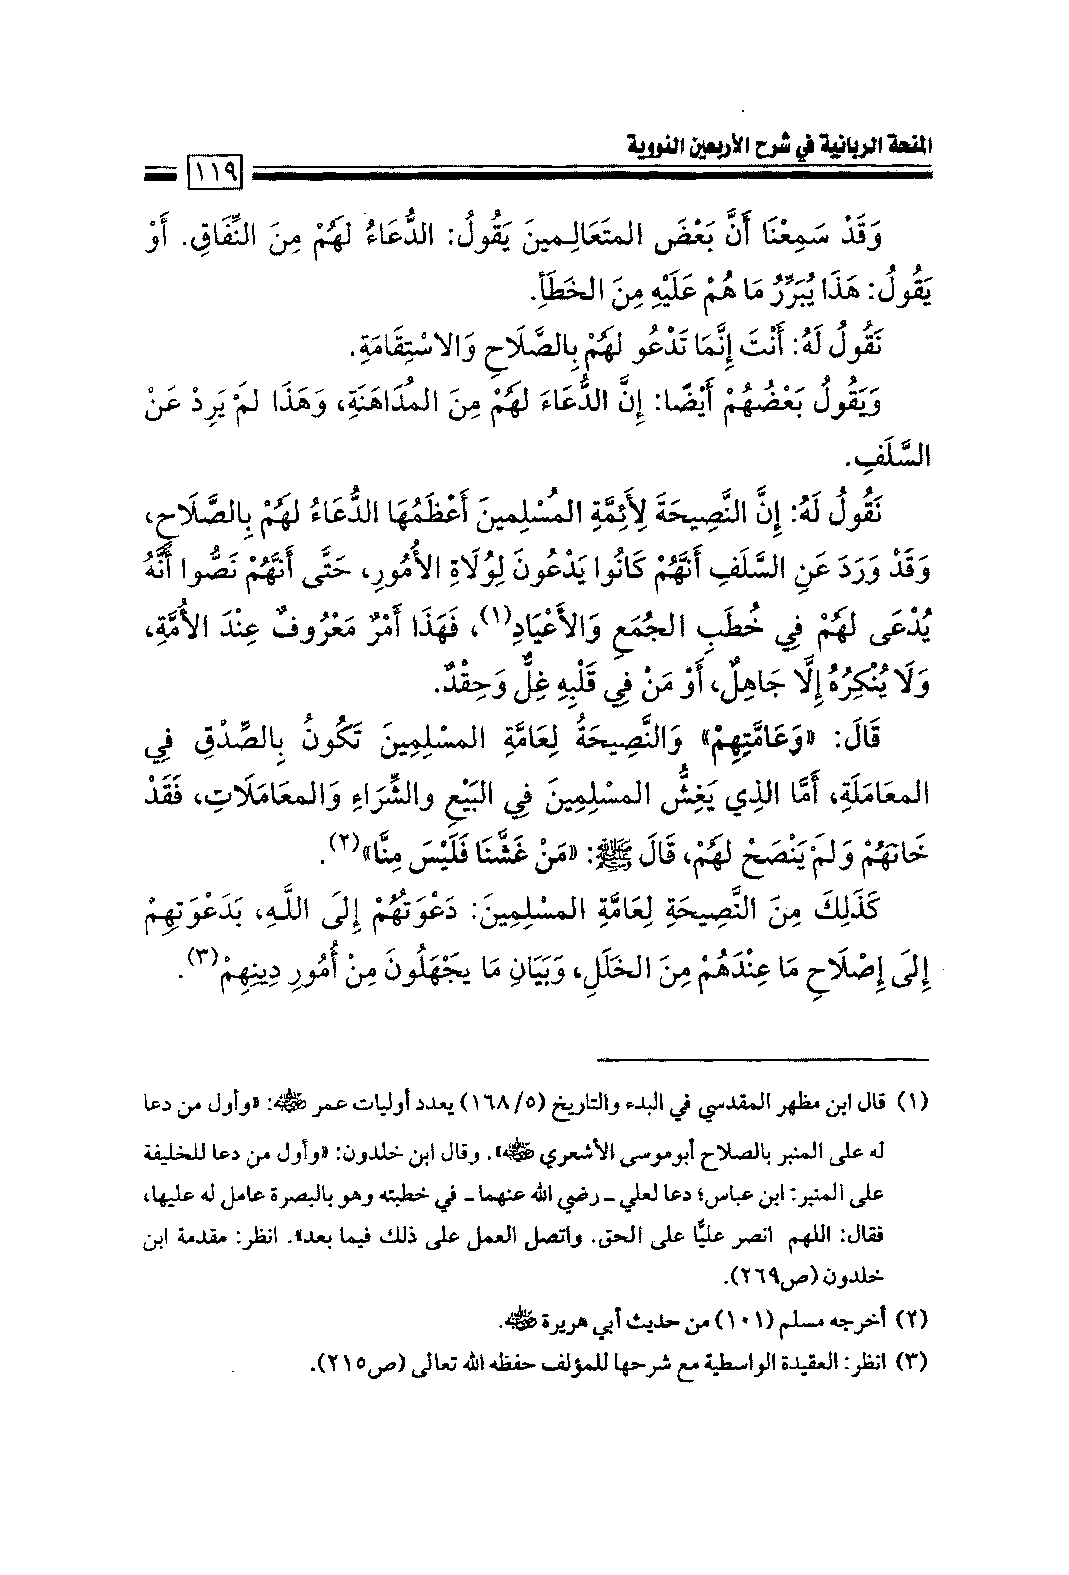 المنحة الربانية في شرح الأربعين النووية
١١٩
وَقَدْ سَمِعْنَا أَنَّ بَعْضَ المتَعَالِمينَ يَقُولُ: الدُّعَاءُ لهُمْ مِنَ النِّفَاقِ. أَوْ
يَقُولُ: هَذَا يُبَرِّرُ مَا هُمْ عَلَيْهِ مِنَ الخَطَأِ.
نَقُولُ لَهُ: أَنْتَ إِنَّمَا تَدْعُو لهُمْ بِالصَّلَاحِ وَالاسْتِقَامَةِ.
وَيَقُولُ بَعْضُهُمْ أَيْضًا: إِنَّ الدُّعَاءَ لهُمْ مِنَ المُدَاهَنَةِ، وَهَذَا لَمْ يَرِدْ عَنْ
السَّلَفِ.
نَقُولُ لَهُ: إِنَّ النَّصِيحَةَ لِأَئِمَّةِ المُسْلِمِينَ أَعْظَمُهَا الدُّعَاءُ لهُمْ بِالصَّلَاحِ،
وَقَدْ وَرَدَ عَنِ السَّلَفِ أَنَّهُمْ كَانُوا يَدْعُونَ لِوُلَاةِ الأُمُورِ، حَتَّى أَنَّهُمْ نَصُّوا أَنَّهُ
يُدْعَى لهُمْ فِي خُطَبِ الجُمَعِ وَالأَعْيَادِ(١)، فَهَذَا أَمْرٌ مَعْرُوفٌ عِنْدَ الأُمَّةِ،
وَلَا يُنْكِرُهُ إِلَّا جَاهِلٌ، أَوْ مَنْ فِي قَلْبِهِ غِلٌّ وَحِقْدٌ.
قَالَ: «وَعَامَّتِهِمْ» وَالنَّصِيحَةُ لِعَامَّةِ المسْلِمِينَ تَكُونُ بِالصِّدْقِ فِي
المعَامَلَةِ، أَمَّا الذِي يَغِشُّ المسْلِمِينَ فِي البَيْعِ والشِّرَاءِ وَالمعَامَلَاتِ، فَقَدْ
خَانَهُمْ وَلَمْ يَنْصَحْ لهُمْ، قَالَ ﷺ: «مَنْ غَشَّنَا فَلَيْسَ مِنَّا»(٢).
كَذَلِكَ مِنَ النَّصِيحَةِ لِعَامَّةِ المسْلِمِينَ: دَعْوَتُهُمْ إِلَى اللَّهِ، بَدَعْوَتِهِمْ
إِلَى إِصْلَاحِ مَا عِنْدَهُمْ مِنَ الخَلَلِ، وَبَيَانِ مَا يجْهَلُونَ مِنْ أُمُورِ دِينِهِمْ(٣).
(١) قال ابن مظهر المقدسي في البدء والتاريخ (١٦٨/٥) يعدد أوليات عمر رضي الله عنه: «وأول من دعا
له على المنبر بالصلاح أبوموسى الأشعري رضي الله عنه». وقال ابن خلدون: «وأول من دعا للخليفة
على المنبر: ابن عباس؛ دعا لعلي - رضي الله عنهما - في خطبته وهو بالبصرة عامل له عليها،
فقال: اللهم انصر عليًّا على الحق. واتصل العمل على ذلك فيما بعد». انظر: مقدمة ابن
خلدون (ص٢٦٩).
(٢) أخرجه مسلم (١٠١) من حديث أبي هريرة رضي الله عنه.
(٣) انظر: العقيدة الواسطية مع شرحها للمؤلف حفظه الله تعالى (ص٢١٥).